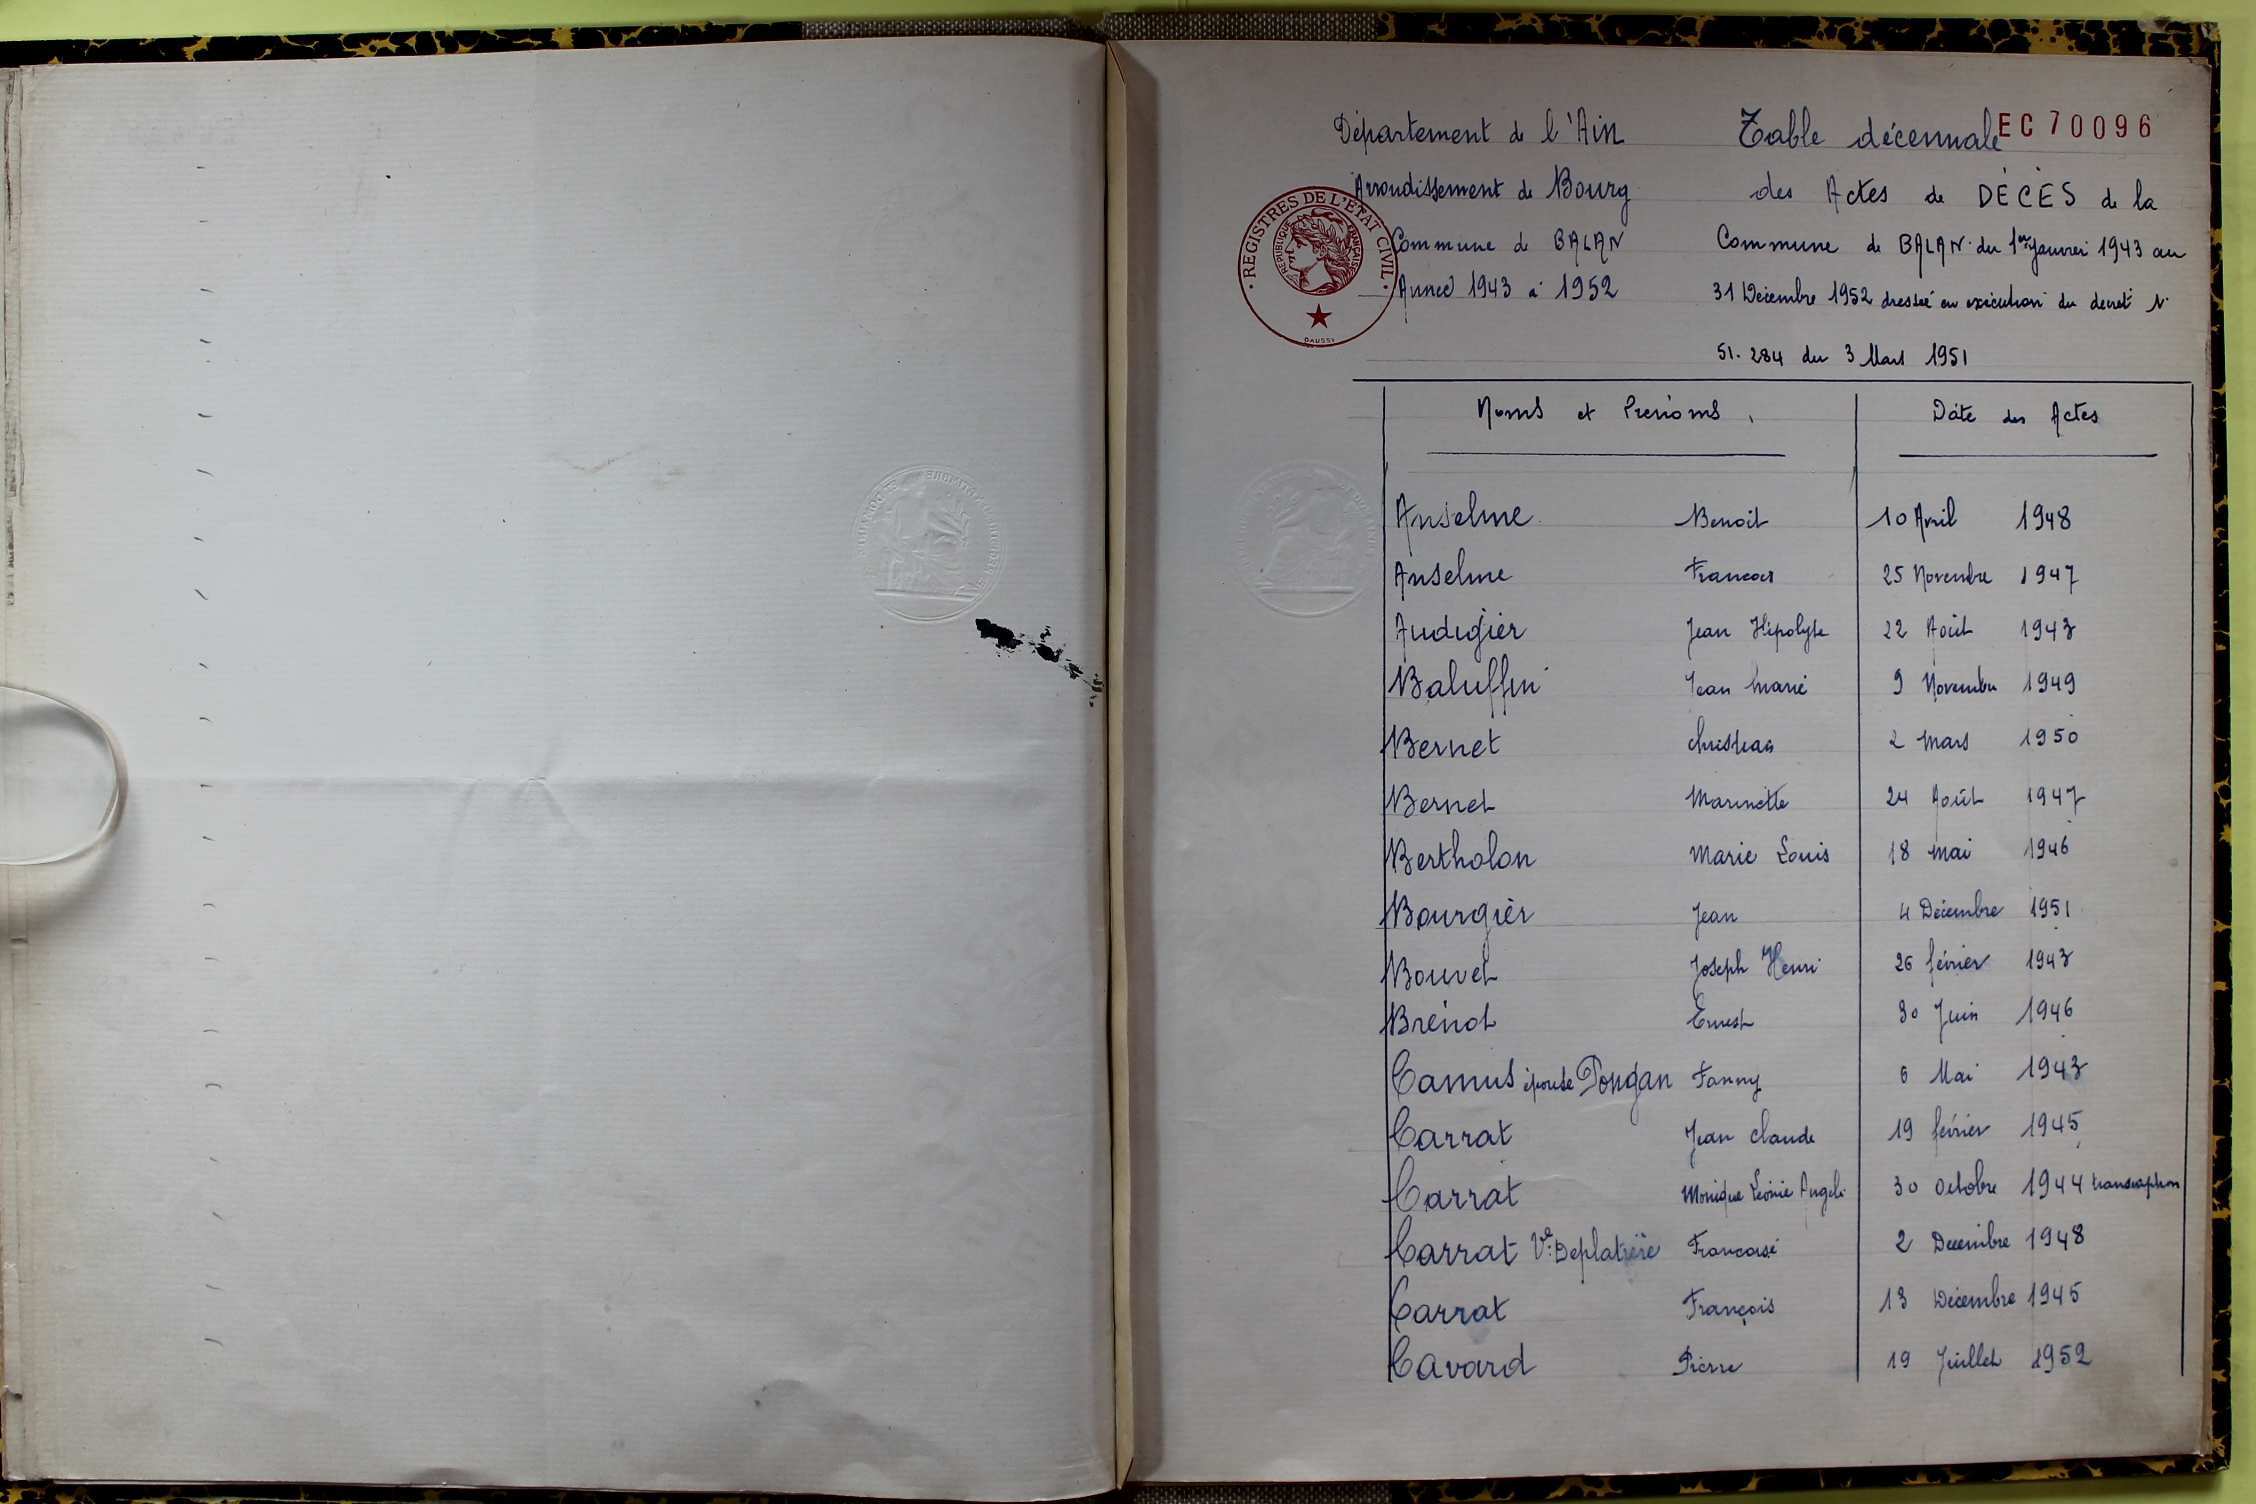 Département de l'Ain
Arrondissement de Bourg
Commune de BALAN
Année 1943 à 1952
REGISTRES DE L'ÉTAT CIVIL
RÉPUBLIQUE FRANÇAISE
DAUSSY
EC 70096
Table décennale
des Actes de DÉCÈS de la
Commune de BALAN du 1er Janvier 1943 au
31 Décembre 1952 dressée en exécution du decret N°
51.284 du 3 Mars 1951
Noms et Prénoms Date des Actes
Anselme Benoit 10 Avril 1948
Anselme Francois 25 Novembre 1947
Audigier Jean Hipolyte 22 Août 1943
Baluffin Jean Marie 9 Novembre 1949
Bernet christian 2 Mars 1950
Bernet Marinette 24 Août 1947
Bertholon Marie Louis 18 Mai 1946
Bourgièr Jean 4 Décembre 1951
Bouvet Joseph Henri 26 février 1943
Brénot Ernest 30 Juin 1946
Camus épouse Pongan Fanny 6 Mai 1943
Carrat Jean claude 19 février 1945
Carrat Monique Léonie Angele 30 Octobre 1944 transcription
Carrat Ve Deplatrière Francoise 2 Decembre 1948
Carrat François 13 Décembre 1945
Cavard Pierre 19 Juillet 1952